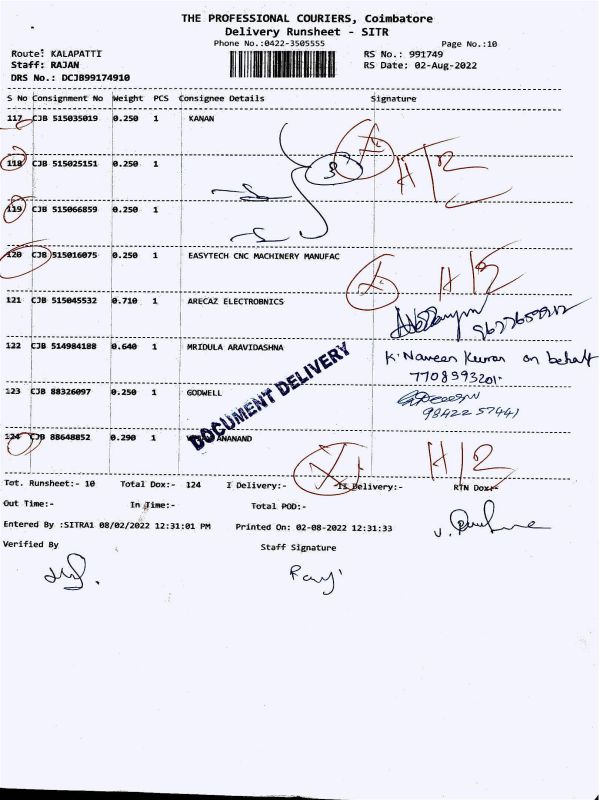 THE PROFESSIONAL COURIERS, Coimbatore
Delivery Runsheet - SITR
Phone No.:0422-3505555
Page No.:10
Route: KALAPATTI
RS No.: 991749
Staff: RAJAN
RS Date: 02-Aug-2022
DRS No.: DCJB99174910
S No Consignment No Weight PCS Consignee Details Signature
117 CJB 515035019 0.250 1 KANAN
118 CJB 515025151 0.250 1
3
119 CJB 515066859 0.250 1
120 CJB 515016075 0.250 1 EASYTECH CNC MACHINERY MANUFAC
121 CJB 515045532 0.710 1 ARECAZ ELECTROBNICS
122 CJB 514984188 0.640 1 MRIDULA ARAVIDASHNA
K. Naveen Kumar on behalf
7708393201.
DOCUMENT DELIVERY
123 CJB 88326097 0.250 1 GODWELL
98422 57441
124 CJB 88648852 0.290 1 ANANAND
Tot. Runsheet:- 10 Total Dox:- 124 I Delivery:- II Delivery:- RTN Dox:-
Out Time:- In Time:- Total POD:-
Entered By :SITRA1 08/02/2022 12:31:01 PM Printed On: 02-08-2022 12:31:33
Verified By Staff Signature